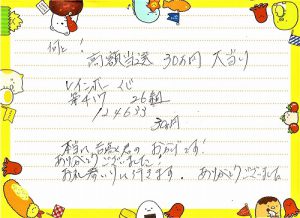 何と!
高額当選 30万円 大当り
レインボーくじ
第417 26組
124633
30万円
本当に のおかげです!
ありがとうございました!
お礼参りに行きます。ありがとうございました